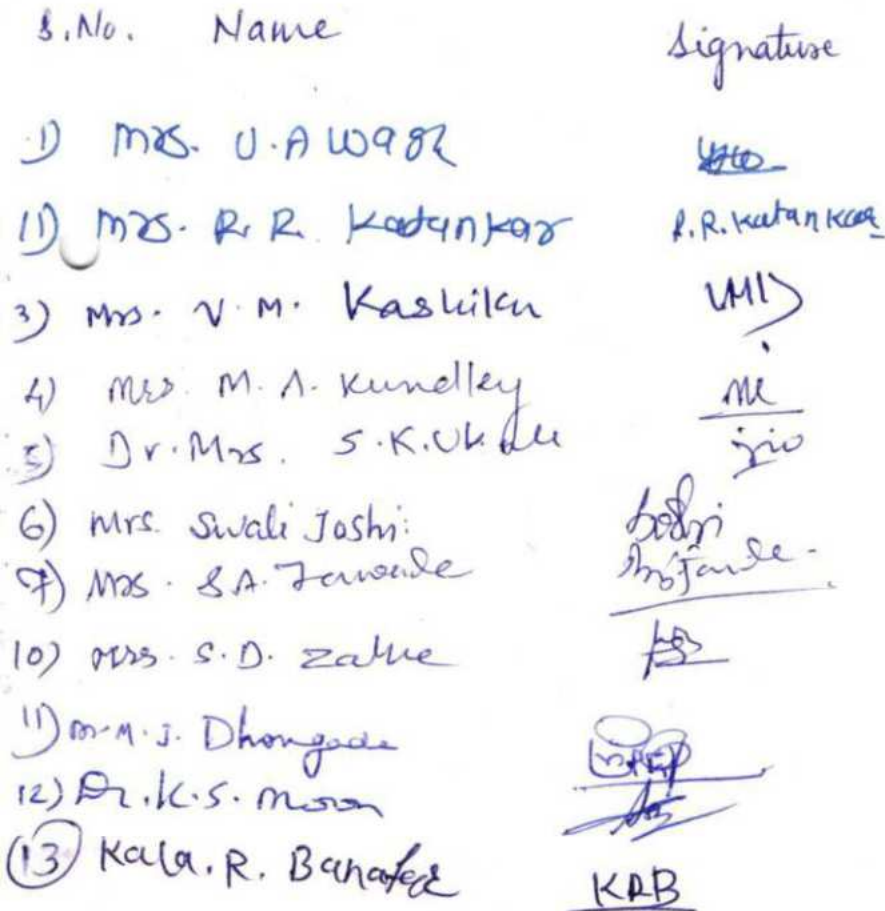 S.No. Name Signature
1) Mrs. U.A Wagh
11) Mrs. R.R. Katankar R.R. Katankar
3) Mrs. V.M. Kashikar
4) Mrs. M.A. Kundley
5) Dr. Mrs. S.K.
6) Mrs. Swali Joshi Joshi
7) Mrs. S.A.
10) Mrs. S.D. Zalke
11) M.J. Dhongade
12) Dr. K.S. Moon
13 Kala. R. KRB